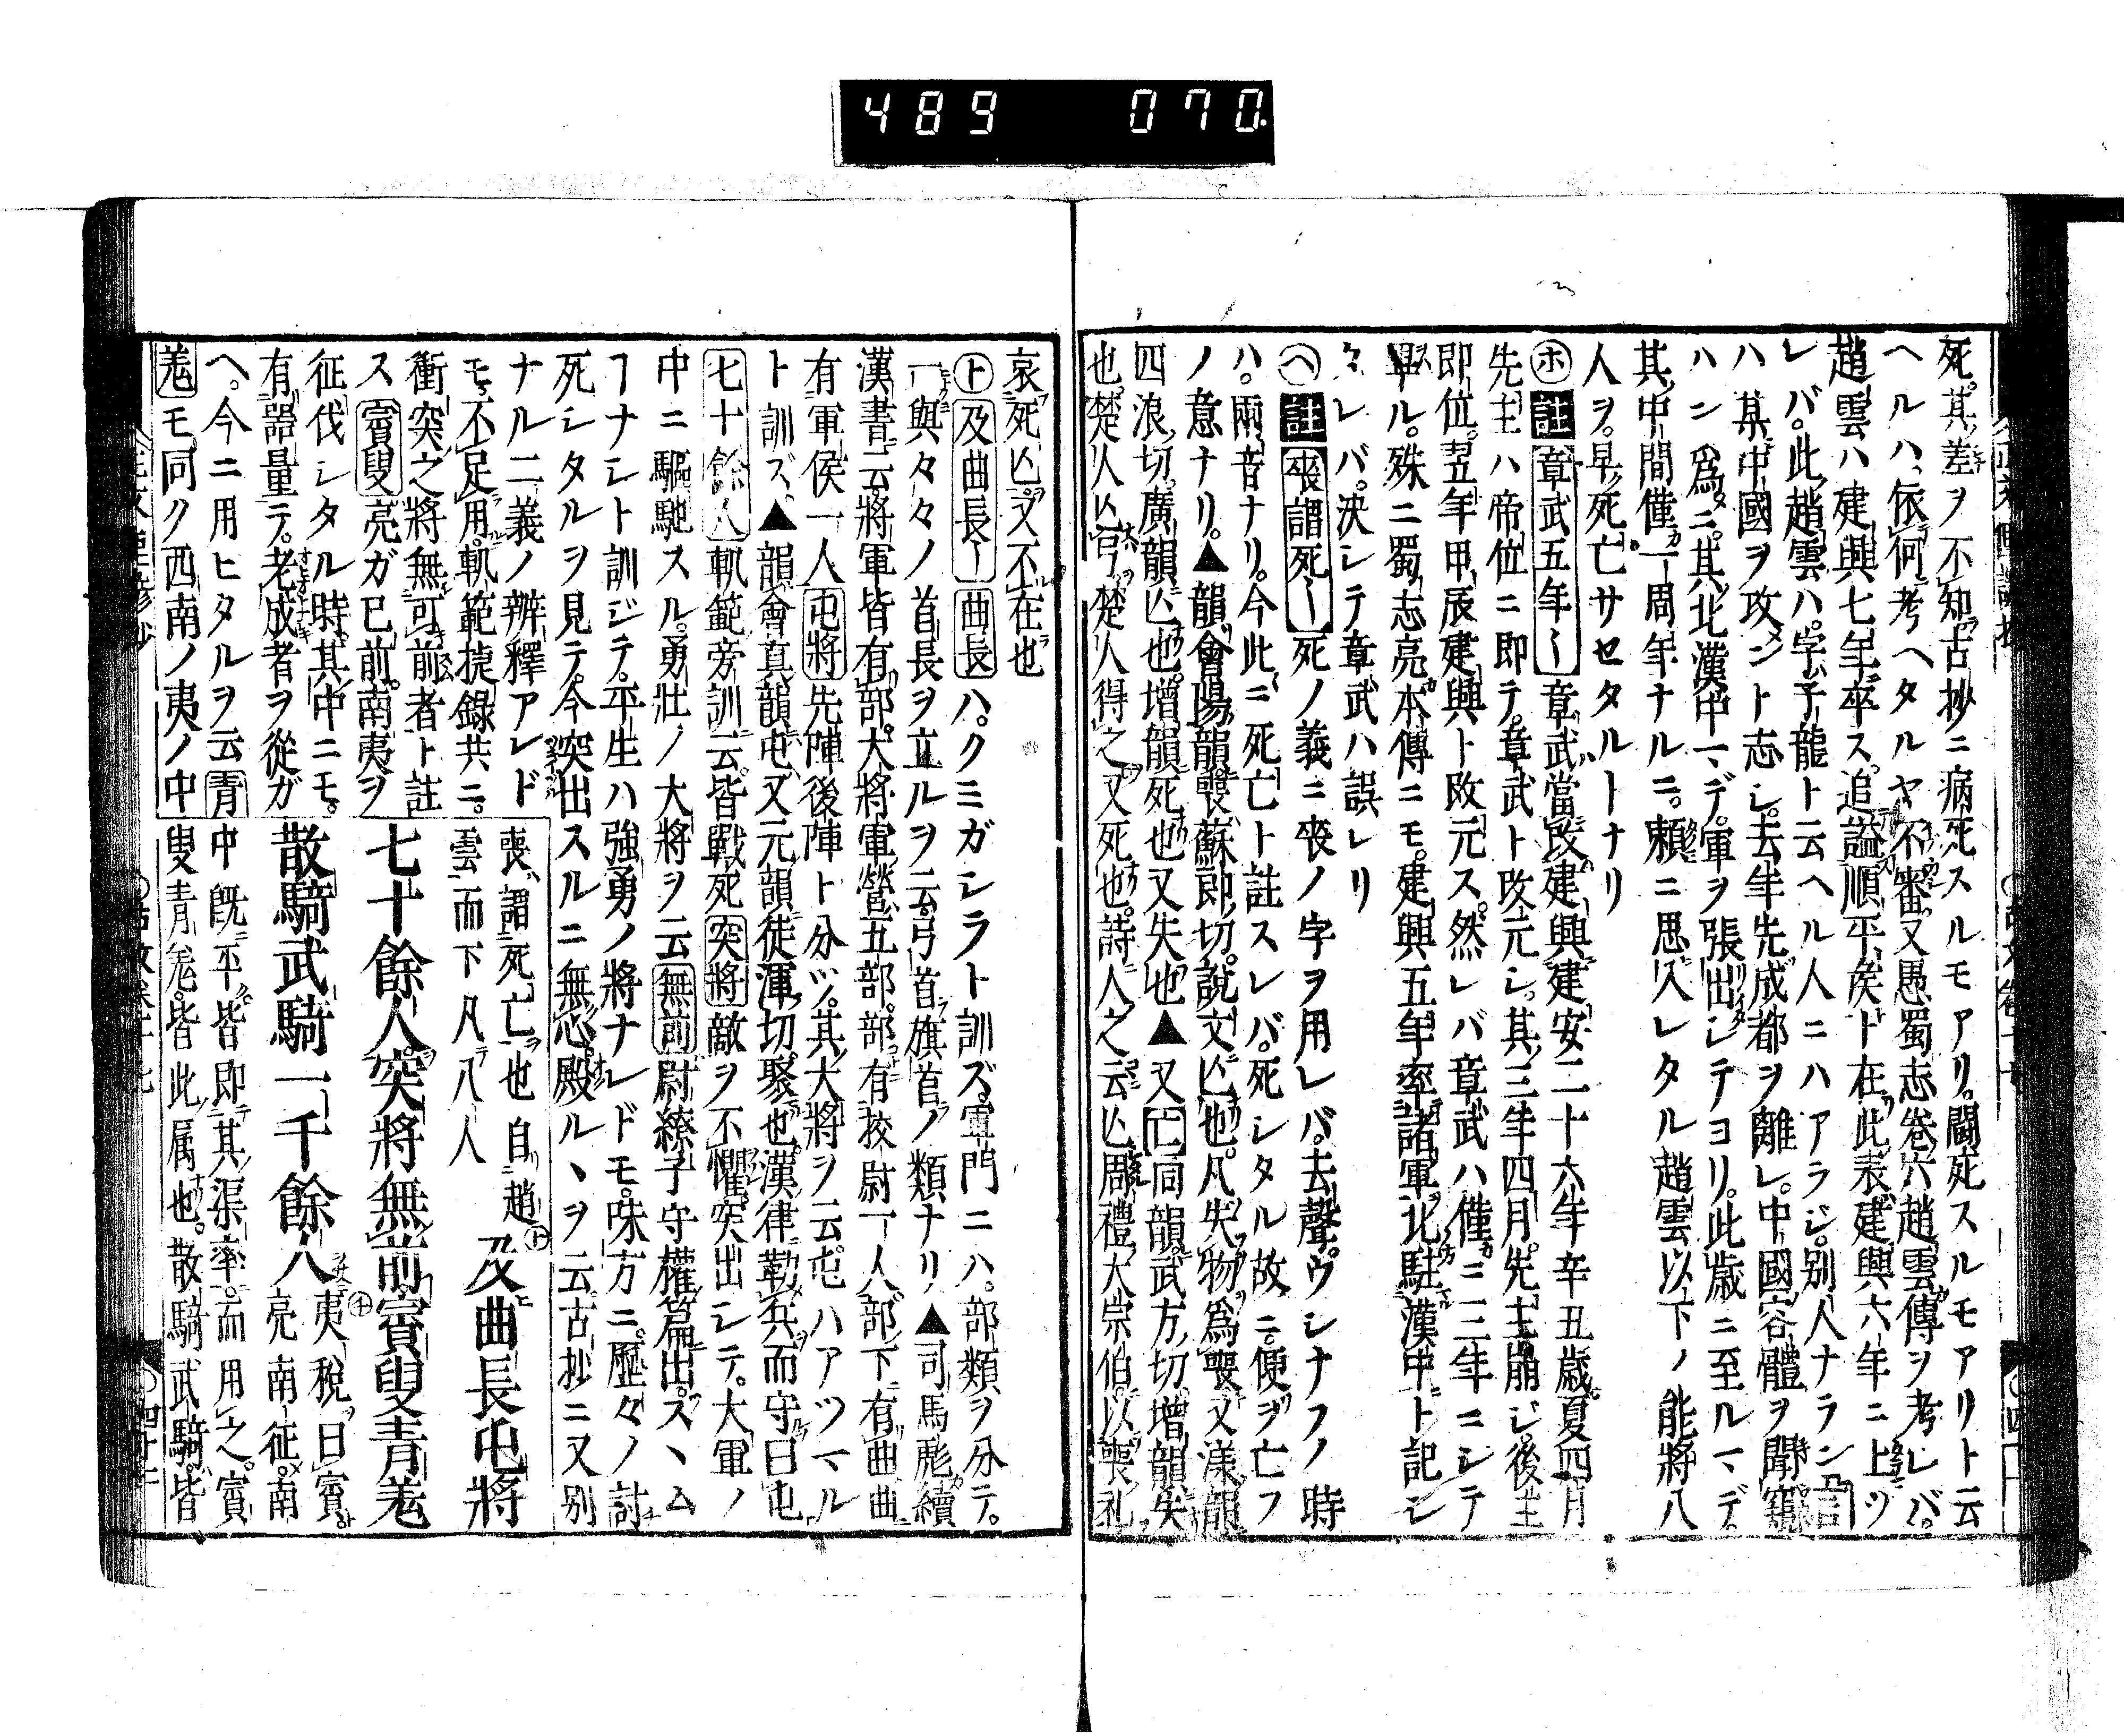 489 070
死。其差ヲ不知古抄ニ病死スルモアリ。闘死スルモアリト云
ヘルハ、依何考ヘタルヤ不審。又愚蜀志巻六趙雲傳ヲ考レバ。
趙雲ハ建興七年卒ス。追謚順平侯ト在。此表建興六年ニ上ツ
レバ。此趙雲ハ。字子龍ト云ヘル人ニハアラジ。別人ナラン
ハ其中國ヲ攻ント志シ。去年先成都ヲ離レ。中國容體ヲ聞窺
ハン為ニ。其北漢中マデ。軍ヲ張出シテヨリ。此歳ニ至ルマデ。
其中間僅一周年ナルニ。頼ニ思入レタル趙雲以下ノ能將八
人ヲ。早死亡サセタルトナリ
ホ 註 章武五年〡 章武當改建興建安二十六年辛丑歳夏四月
先主ハ帝位ニ即テ。章武ト改元シ。其三年四月。先主崩ジ。後主
即位。翌年甲辰建興ト改元ス。然レバ章武ハ僅ニ三年ニシテ
畢ル。殊ニ蜀志亮本傳ニモ。建興五年率諸軍北駐漢中ト記シ
タレバ。決シテ章武ハ誤レリ
ヘ 註 喪謂死〡 死ノ義ニ喪ノ字ヲ用レバ。去聲。ウシナフノ時
ハ。兩音ナリ。今此ニ死亡ト註スレバ。死シタル故ニ。便ヲ亡フ
ノ意ナリ。▲韻會陽韻喪蘇即切。說文亾也。凡失物為喪又漾韻
四浪切。廣韻亾也。增韻死也又失也▲又亡同韻。武方切。增韻失
也。楚人亾弓。楚人得之又死也。詩人之云亾。周禮大宗伯。以喪礼
哀死亾。又不在也
ト 及曲長〡 曲長ハ。クミガシラト訓ズ。軍門ニハ。部類ヲ分テ。
一與々々ノ首長ヲ立ルヲ云。弓首旗首ノ類ナリ▲司馬彪續
漢書云。將軍皆有部。大將軍營五部。部有挍尉一人。部下有曲曲
有軍侯一人 屯將 先陣後陣ト分ツ。其大將ヲ云。屯ハアツマル
ト訓ズ。▲韻會真韻屯又元韻徒渾切。聚也。漢律勒兵而守曰屯
七十餘人 軌範旁訓云。皆戰死 突將 敵ヲ不懼。突出シテ。大軍ノ
中ニ驅馳スル。勇壯ノ大將ヲ云 無前 尉繚子守權篇出。スヽム
ヿナシト訓ジテ。平生ハ強勇ノ將ナレドモ。味方ニ歴々ノ討
死シタルヲ見テ。今突出スルニ無忩。殿ルヽヲ云。古抄ニ又別
ナル二義ノ辨釋アレド
モ。不足用。軌範捷録共ニ。
衝突之將無可前者ト註
ス 賨叟 亮ガ已前。南夷ヲ
征伐シタル時。其中ニモ。
有器量テ。老成者ヲ從ガ
ヘ。今ニ用ヒタルヲ云 青
羗 モ同ク西南ノ夷ノ中
喪、謂死亡也 自趙
雲而下凡八人
ト 及曲長屯將
七十餘人突將無前賨叟青羗
散騎武騎一千餘人
夷税曰賨
亮南征。南
中既平。皆即其渠率。而用之。賨
叟青羗。皆此属也。散騎武騎。皆